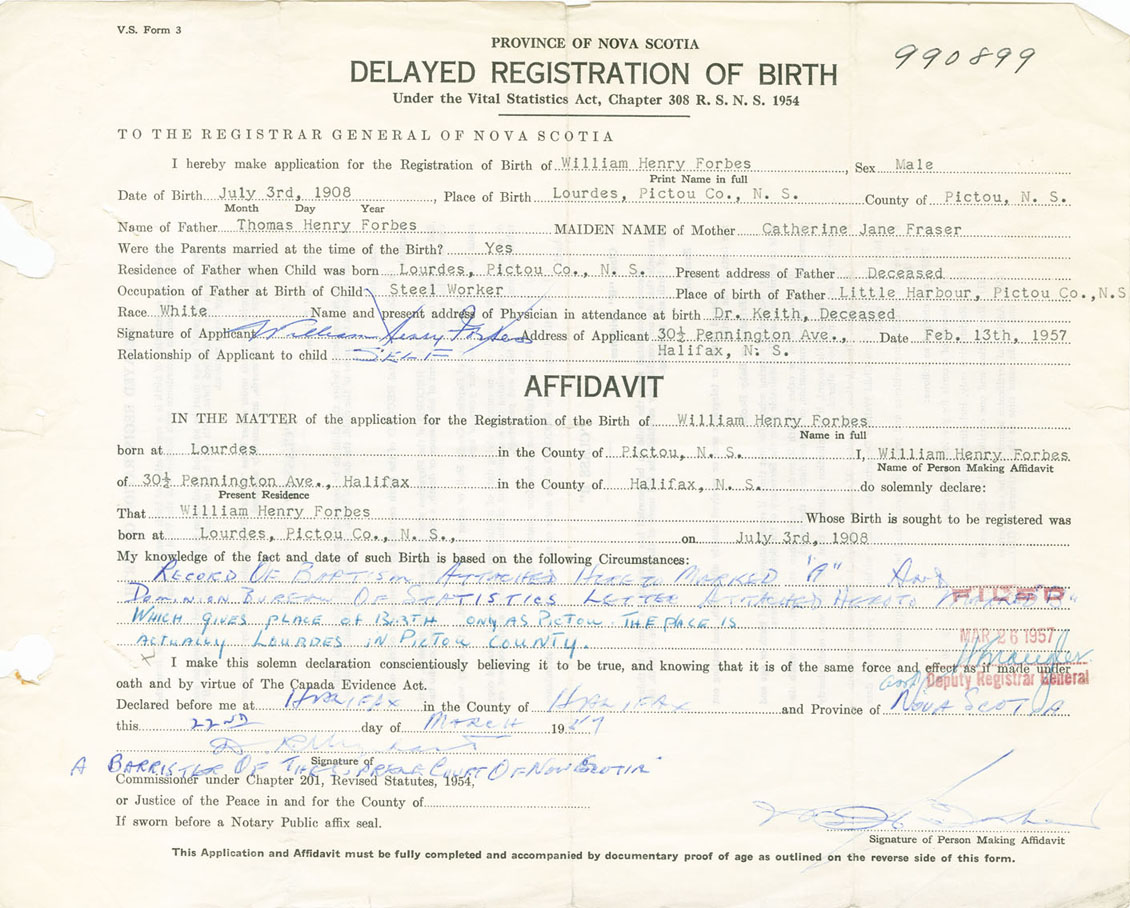 V.S. Form 3
990899
PROVINCE OF NOVA SCOTIA
DELAYED REGISTRATION OF BIRTH
Under the Vital Statistics Act, Chapter 308 R. S. N. S. 1954
TO THE REGISTRAR GENERAL OF NOVA SCOTIA
I hereby make application for the Registration of Birth of William Henry Forbes, Sex Male
Print Name in full
Date of Birth July 3rd, 1908, Place of Birth Lourdes, Pictou Co., N. S. County of Pictou, N. S.
Month Day Year
Name of Father Thomas Henry Forbes MAIDEN NAME of Mother Catherine Jane Fraser
Were the Parents married at the time of the Birth? Yes
Residence of Father when Child was born Lourdes, Pictou Co., N. S. Present address of Father Deceased
Occupation of Father at Birth of Child Steel Worker Place of birth of Father Little Harbour, Pictou Co., N.S
Race White Name and present address of Physician in attendance at birth Dr. Keith, Deceased
Signature of Applicant William Henry Forbes Address of Applicant 30½ Pennington Ave., Date Feb. 13th, 1957
Relationship of Applicant to child SELF Halifax, N. S.
AFFIDAVIT
IN THE MATTER of the application for the Registration of the Birth of William Henry Forbes
Name in full
born at Lourdes in the County of Pictou, N. S. I, William Henry Forbes
Name of Person Making Affidavit
of 30½ Pennington Ave., Halifax in the County of Halifax, N. S. do solemnly declare:
Present Residence
That William Henry Forbes Whose Birth is sought to be registered was
born at Lourdes, Pictou Co., N. S., on July 3rd, 1908
My knowledge of the fact and date of such Birth is based on the following Circumstances:
RECORD OF BAPTISM ATTACHED HERETO MARKED "A" AND
DOMINION BUREAU OF STATISTICS LETTER ATTACHED HERETO MARKED "B"
FILED
WHICH GIVES PLACE OF BIRTH ONLY AS PICTOU. THE PLACE IS
ACTUALLY LOURDES IN PICTOU COUNTY.
MAR 26 1957
I make this solemn declaration conscientiously believing it to be true, and knowing that it is of the same force and effect as if made under
oath and by virtue of The Canada Evidence Act.
Deputy Registrar General
Declared before me at HALIFAX in the County of HALIFAX and Province of NOVA SCOTIA
this 22ND day of MARCH 1957
Signature of
A BARRISTER OF THE SUPREME COURT OF NOVA SCOTIA
Commissioner under Chapter 201, Revised Statutes, 1954,
or Justice of the Peace in and for the County of
If sworn before a Notary Public affix seal.
Signature of Person Making Affidavit
This Application and Affidavit must be fully completed and accompanied by documentary proof of age as outlined on the reverse side of this form.